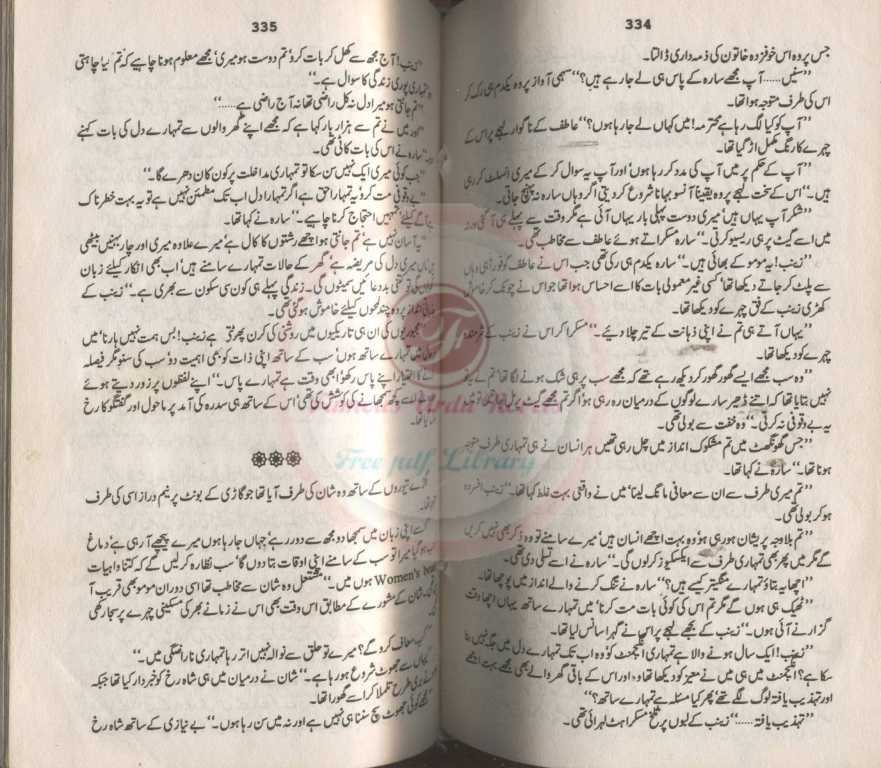 334
جس پر وہ اس خوفزدہ خاتون کی ذمہ داری ڈالتا۔
’’سنیں...... آپ مجھے سارہ کے پاس ہی لے جا رہے ہیں؟‘‘ سہمی آواز پر وہ یکدم ہی رک کر
اس کی طرف متوجہ ہوا تھا۔
’’آپ کو کیا لگ رہا ہے محترمہ! میں کہاں لے جا رہا ہوں؟‘‘ عاطف کے ناگوار لہجے پر اس کے
چہرے کا رنگ مکمل اڑ گیا تھا۔
’’آپ کے حکم پر میں آپ کی مدد کر رہا ہوں‘ اور آپ یہ سوال کر کے میری انسلٹ کر رہی
ہیں۔‘‘ اس کے سخت لہجے پر وہ یقیناً آنسو بہانا شروع کر دیتی اگر وہاں سارہ نہ پہنچ جاتی۔
’’شکر آپ یہاں ہیں‘ میری دوست پہلی بار یہاں آئی ہے مگر وقت سے پہلے ہی آ گئی ورنہ
میں اسے گیٹ پر ہی ریسیو کرتی۔‘‘ سارہ مسکراتے ہوئے عاطف سے مخاطب تھی۔
’’زینب! یہ مومو کے بھائی ہیں۔‘‘ سارہ یکدم ہی رکی تھی جب اس نے عاطف کو فوراً ہی وہاں
سے پلٹ کر جاتے دیکھا تھا‘ کسی غیر معمولی بات کا اسے احساس ہوا تھا جو اس نے چونک کر خاموش
کھڑی زینب کے فق چہرے کو دیکھا تھا۔
’’یہاں آتے ہی تم نے اپنی ذہانت کے تیر چلا دیے۔‘‘ مسکرا کر اس نے زینب کے شرمندہ
چہرے کو دیکھا تھا۔
’’وہ سب مجھے ایسے گھور گھور کر دیکھ رہے تھے کہ مجھے سب پر ہی شک ہونے لگا تھا‘ تم نے یہ
نہیں بتایا تھا کہ اتنے ڈھیر سارے لوگوں کے درمیان رہ رہی ہو‘ اگر تم مجھے گیٹ پر مل جاتیں تو میں
یہ بے وقوفی نہ کرتی۔‘‘ وہ خفت سے بولی تھی۔
’’جس گھونگھٹ میں تم مشکوک انداز میں چل رہی تھیں ہر انسان نے ہی تمہاری طرف متوجہ
ہونا تھا۔‘‘ سارہ نے کہا تھا۔
’’تم میری طرف سے ان سے معافی مانگ لینا‘ میں نے واقعی بہت غلط کہا تھا۔‘‘ زینب افسردہ
ہو کر بولی تھی۔
’’تم بلاوجہ پریشان ہو رہی ہو‘ وہ بہت اچھے انسان ہیں‘ میرے سامنے تو وہ ذکر بھی نہیں کریں
گے مگر میں پھر بھی تمہاری طرف سے ایکسکیوز کر لوں گی۔‘‘ سارہ نے اسے تسلی دی تھی۔
’’اچھا یہ بتاؤ تمہارے منگیتر کیسے ہیں؟‘‘ سارہ نے تنگ کرنے والے انداز میں پوچھا تھا۔
’’ٹھیک ہی ہوں گے مگر تم اس کی کوئی بات مت کرنا‘ میں تمہارے ساتھ یہاں اچھا وقت
گزارنے آئی ہوں۔‘‘ زینب کے بجھے لہجے پر اس نے گہرا سانس لیا تھا۔
’’زینب! ایک سال ہونے والا ہے تمہاری انگیجمنٹ کو‘ وہ اب تک تمہارے دل میں جگہ نہیں بنا
سکا ہے؟ انگیجمنٹ میں میں نے معیز کو دیکھا تھا وہ اور اس کے باقی گھر والے بھی مجھے بہت اچھے
اور تہذیب یافتہ لوگ لگے تھے‘ پھر کیا مسئلہ ہے تمہارے ساتھ؟‘‘
’’تہذیب یافتہ......‘‘ زینب کے لبوں پر تلخ مسکراہٹ لہرائی تھی۔
335
’’زینب! آج مجھ سے کھل کر بات کرو‘ تم دوست ہو میری‘ مجھے معلوم ہونا چاہیے کہ تم کیا چاہتی
تمہاری پوری زندگی کا سوال ہے۔‘‘
’’تم جانتی ہو میرا دل نہ کل راضی تھا نہ آج راضی ہے......‘‘
’’اور میں نے تم سے ہزار بار کہا ہے کہ مجھے اپنے گھر والوں سے تمہارے دل کی بات کہنے
سارہ نے اس کی بات کاٹی تھی۔
’’جب کوئی میری ایک نہیں سن سکا تو تمہاری مداخلت پر کون کان دھرے گا۔‘‘
’’بے وقوفی مت کرو‘ یہ تمہارا حق ہے اگر تمہارا دل اب تک مطمئن نہیں ہے تو یہ بہت خطرناک
آگے کیلئے‘ تمہیں احتجاج کرنا چاہیے۔‘‘ سارہ نے کہا تھا۔
’’یہ آسان نہیں ہے‘ تم جانتی ہو اچھے رشتوں کا کال ہے‘ میرے علاوہ میری اور چار بہنیں بیٹھی
میری دل کی مریضہ ہے‘ گھر کے حالات تمہارے سامنے ہیں‘ اب بھی انکار کیلئے زبان
تو کتنی بددعائیں سمیٹوں گی۔ زندگی پہلے ہی کون سی سکون سے بھری ہے۔‘‘ زینب کے
انداز پر وہ چند لمحوں کیلئے خاموش ہو گئی تھی۔
’’مجبوریوں کی ان ہی تاریکیوں میں روشنی کی کرن پھوٹتی ہے زینب! بس ہمت نہیں ہارنا‘ میں
تمہارے ساتھ ہوں‘ سب کے ساتھ اپنی ذات کو بھی اہمیت دو‘ سب کی سنو مگر فیصلہ
کا اختیار اپنے پاس رکھو‘ ابھی وقت ہے تمہارے پاس۔‘‘ اپنے لفظوں پر زور دیتے ہوئے
اسے کچھ سمجھانے کی کوشش کی تھی‘ اس کے ساتھ ہی سدرہ کی آمد پر ماحول اور گفتگو کا رخ
تیوروں کے ساتھ وہ شان کی طرف آیا تھا جو گاڑی کے بونٹ پر نیم دراز اسی کی طرف
اپنی زبان میں سمجھا دو مجھ سے دور رہے‘ جہاں جا رہا ہوں میرے پیچھے آ رہی ہے‘ دماغ
گیا میرا تو سب کے سامنے اپنی اوقات بتا دوں گا‘ سب نظارہ کر لیں گے کہ کتنا واہیات
Women's
ہوں میں۔‘‘ مشتعل وہ شان سے مخاطب تھا اسی دوران مومو بھی قریب آ
شان کے مشورے کے مطابق اس وقت بھی اس نے زمانے بھر کی مسکینی چہرے پر سجا رکھی
’’کب معاف کرو گے؟ میرے تو حلق سے نوالہ نہیں اتر رہا تمہاری ناراضگی میں۔‘‘
’’یہاں سے جھوٹ شروع ہو رہا ہے۔‘‘ شان نے درمیان میں ہی شاہ رخ کو خبردار کیا تھا جبکہ
بری طرح تلملا کر اسے گھورا تھا۔
’’مجھے کوئی جھوٹ سچ سننا ہی نہیں ہے اور نہ میں سن رہا ہوں۔‘‘ بے نیازی کے ساتھ شاہ رخ
Famous Urdu Novels
Free pdf Library